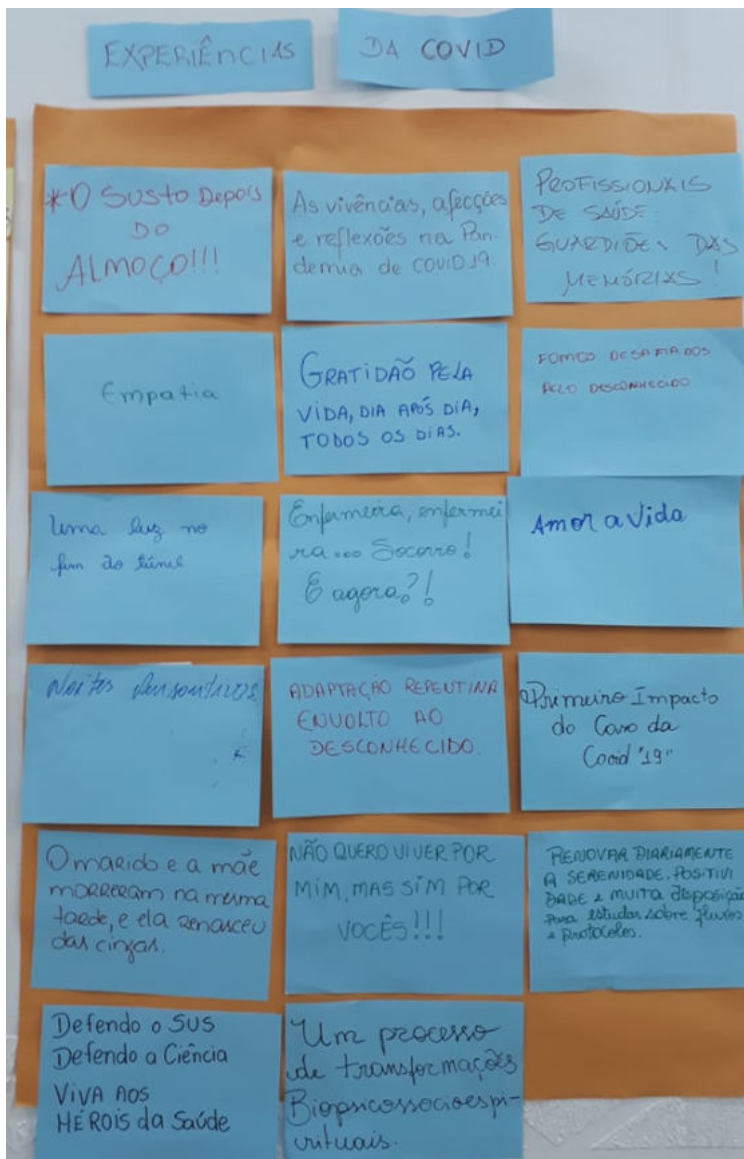 EXPERIÊNCIAS
DA COVID
*O SUSTO DEPOIS
DO
ALMOÇO!!!
As vivências, afecções
e reflexões na Pan-
demia de COVID19
PROFISSIONAIS
DE SAÚDE
GUARDIÕES DAS
MEMÓRIAS!
Empatia
GRATIDÃO PELA
VIDA, DIA APÓS DIA,
TODOS OS DIAS.
FOMOS DESAFIADOS
PELO DESCONHECIDO
Uma luz no
fim do túnel
Enfermeira, enfermei
ra... Socorro!
E agora?!
Amor a Vida
Noites
ADAPTAÇÃO REPENTINA
ENVOLTO AO
DESCONHECIDO.
Primeiro Impacto
do Caso da
Covid "19"
O marido e a mãe
morreram na mesma
tarde, e ela renasceu
das cinzas.
NÃO QUERO VIVER POR
MIM, MAS SIM POR
VOCÊS!!!
RENOVAR DIARIAMENTE
A SERENIDADE, POSITIVI
DADE e MUITA disposição
para estudar sobre fluxos
e protocolos.
Defendo o SUS
Defendo a Ciência
VIVA AOS
HÉROIS da Saúde
Um processo
de transformações
Biopsicossocioespi-
rituais.